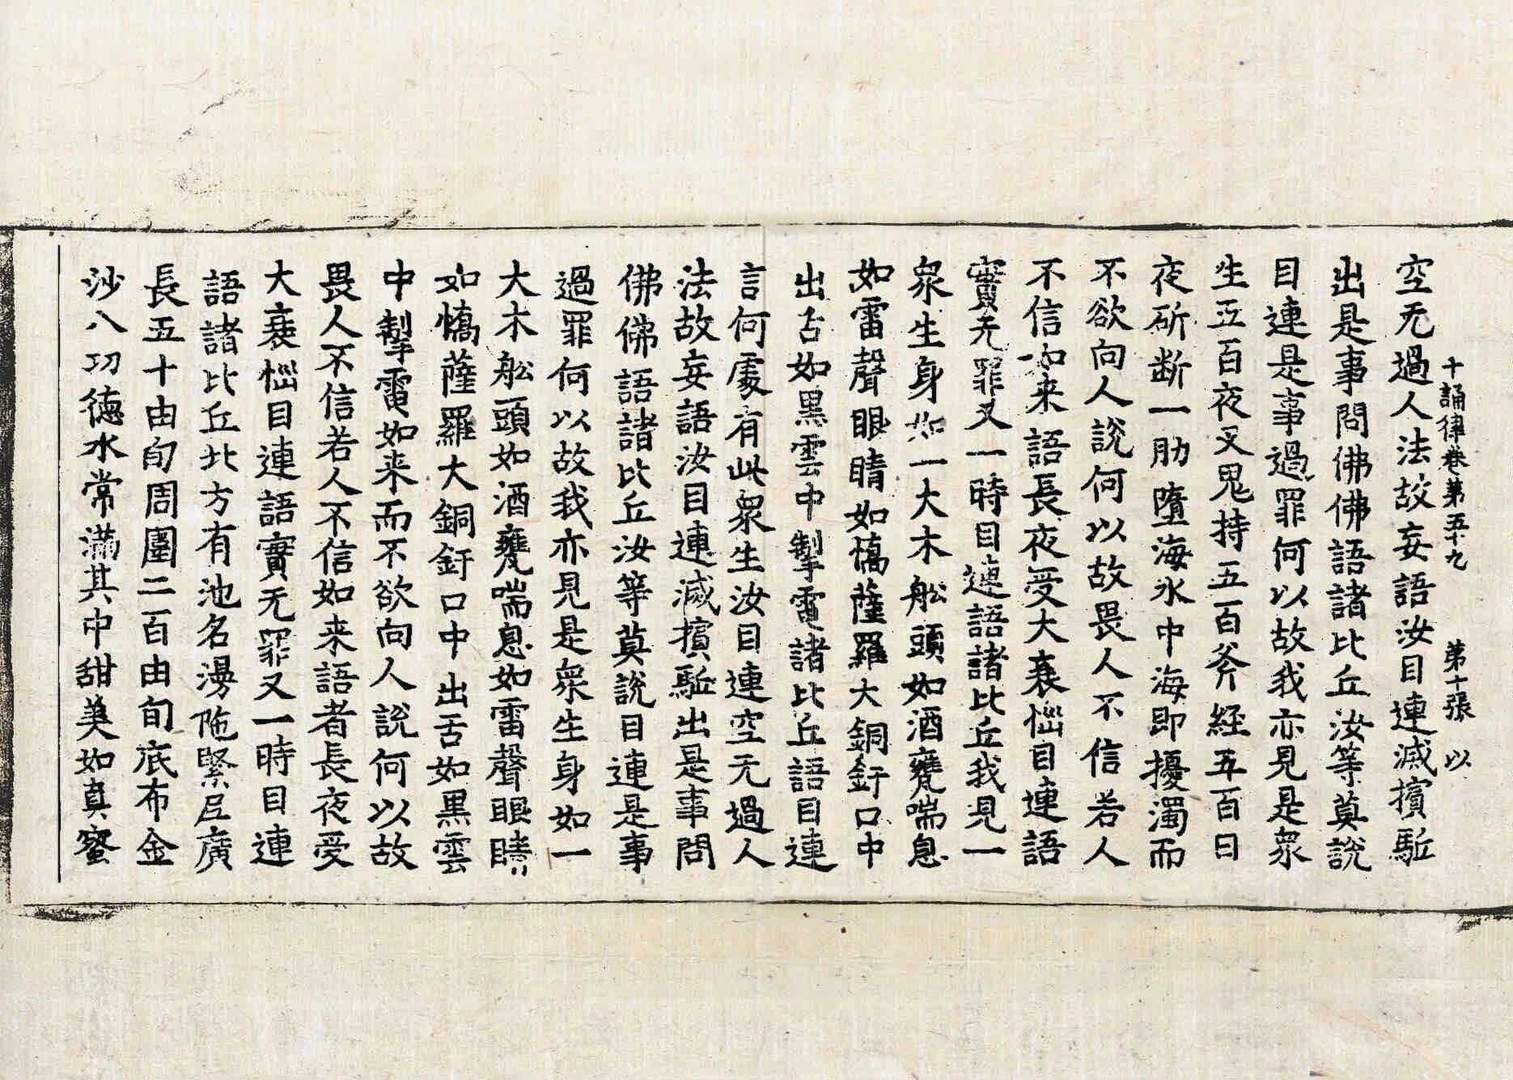 十誦律卷第五十九　第十張　以
空无過人法故妄語汝目連滅擯駈
出是事問佛佛語諸比丘汝等莫說
目連是事過罪何以故我亦見是衆
生五百夜叉鬼持五百斧經五百日
夜斫断一肋墮海水中海即擾濁而
不欲向人說何以故畏人不信若人
不信如来語長夜受大衰惱目連語
實无罪又一時目連語諸比丘我見一
衆生身如一大木舩頭如酒甕喘息
如雷聲眼睛如憍薩羅大銅釪口中
出舌如黑雲中掣電諸比丘語目連
言何處有此衆生汝目連空无過人
法故妄語汝目連滅擯駈出是事問
佛佛語諸比丘汝等莫說目連是事
過罪何以故我亦見是衆生身如一
大木舩頭如酒甕喘息如雷聲眼睛
如憍薩羅大銅釪口中出舌如黑雲
中掣電如来而不欲向人說何以故
畏人不信若人不信如来語者長夜受
大衰惱目連語實无罪又一時目連
語諸比丘北方有池名漫陁緊尼廣
長五十由旬周圍二百由旬底布金
沙八功德水常滿其中甜美如真蜜